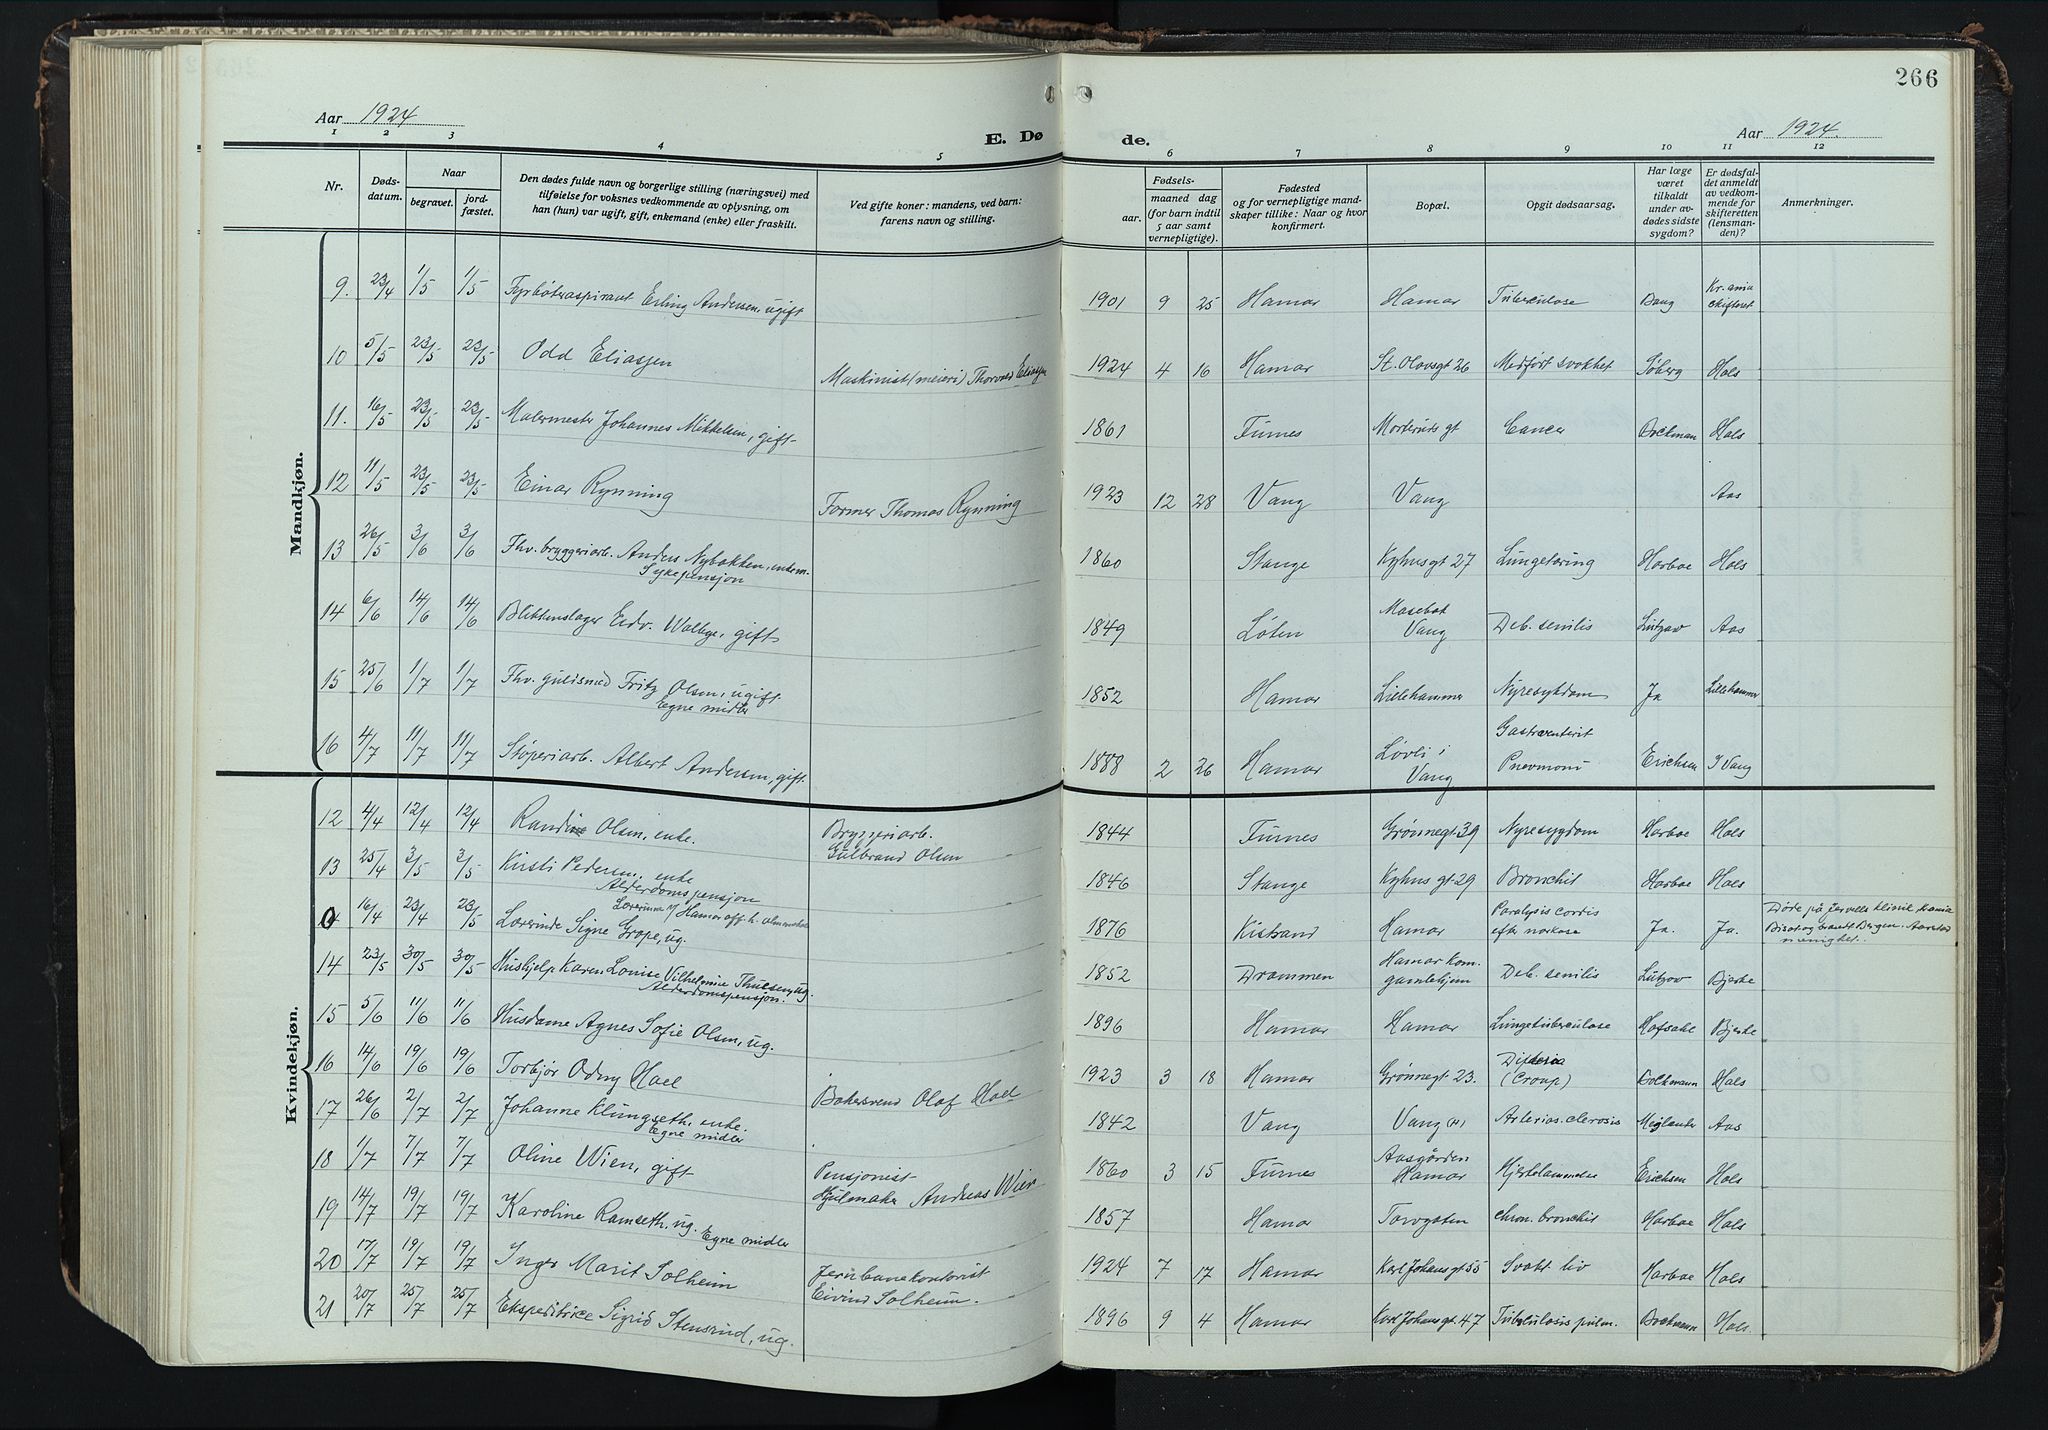 266
Aar 1924
E. Dø
de.
Aar 1924.
1 2 3 4 5 6 7 8 9 10 11 12
Nr.
Døds-
datum.
Naar
begravet.
jord-
fæstet.
Den dødes fulde navn og borgerlige stilling (næringsvei) med
tilføielse for voksnes vedkommende av oplysning, om
han (hun) var ugift, gift, enkemand (enke) eller fraskilt.
Ved gifte koner: mandens, ved barn:
farens navn og stilling.
Fødsels-
aar.
maaned dag
(for barn indtil
5 aar samt
vernepligtige).
Fødested
og for vernepligtige mand-
skaper tillike: Naar og hvor
konfirmert.
Bopæl.
Opgit dødsaarsag.
Har læge
været
tilkaldt
under av-
dødes sidste
sygdom?
Er dødsfal-
det anmeldt
av vedkom-
mende for
skifteretten
(lensman-
den)?
Anmerkninger.
Mandkjøn.
9. 23/4 1/5 1/5 Fyrbøteraspirant Erling Andersen, ugift 1901 9 25 Hamar Hamar Tuberculose Kr.ania
skifteret
10 5/5 23/5 23/5 Odd Eliassen Maskinist (meieri) Thorvald Eliassen 1924 4 16 Hamar St. Olavsgt 26 Medfødt svakhet Søberg Hals
11. 16/5 23/5 23/5 Malermester Johannes Mikkelsen, gift 1861 Furnes Morteruds gt Cancer Hals
12 11/5 23/5 23/5 Einar Rynning Former Thomas Rynning 1923 12 28 Vang Vang Aas
13 26/5 3/6 3/6 Fhv. bryggeriarb. Anders Nybakken, enkem.
Sykepensjon 1860 Stange Kyhusgt 27 Lungetæring Harboe Hals
14 6/6 14/6 14/6 Blikkenslager Edv. Walbye, gift 1849 Løten Vang Deb. senilis Lützow Aas
15 25/6 1/7 1/7 Fhv. gulsmed Fritz Olsen, ugift
Egne midler 1852 Hamar Lillehammer Nyresykdom Ja Lillehammer
16 4/7 11/7 11/7 Støperiarb. Albert Andersen, gift 1888 2 26 Hamar Løvli i
Vang Gastroenterit
Pnevmoni Erichsen I Vang
Kvindekjøn.
12 4/4 12/4 12/4 Randine Olsen, enke. Bryggeriarb.
Gulbrand Olsen 1844 Furnes Grønnegt 39 Nyresygdom Harboe Hals
13 25/4 3/5 3/5 Kirsti Pedersen, enke
Alderdomspensjon 1846 Stange Kyhus gt 29 Bronchit Harboe Hals
0 16/4 23/4 23/5 Lærerinde Signe Grape, ug.
Lærerinne v/ Hamar off. h. almenskole 1876 Kistrand Hamar Paralysis cordis
efter narkose Ja. Ja. Døde på klinik
Bergen. menighet.
14 23/5 30/5 30/5 Hushjelp Karen Louise Vilhelmine Thulsen, ug.
Alderdomspensjon. 1852 Drammen Hamar kom.
gamlehjem Deb. senilis Lützow Bjerke
15 5/6 11/6 11/6 Husdame Agnes Sofie Olsen, ug. 1896 Hamar Hamar Lungetuberculose Hofsahl Bjerke
16 14/6 19/6 19/6 Torbjør Odny Hoel Bakersvend Olaf Hoel 1923 3 18 Hamar Grønnegt 23. Difteria
(Croup) Hals
17 26/6 2/7 2/7 Johanne Klungseth, enke.
Egne midler 1842 Vang Vang (H) Arterios.clerosis Meglander Aas
18 1/7 7/7 7/7 Oline Wien, gift Pensjonist
Hjulmaker Andreas Wien 1860 3 15 Furnes Aasgården
Hamar Hjertelammelse Erichsen Hals
19 14/7 19/7 19/7 Karoline Ramseth, ug. Egne midler 1857 Hamar Torvgaten chron. bronchit Harboe Hals
20 17/7 19/7 19/7 Inger Marit Solheim Jernbanekontorist
Eivind Solheim. 1924 7 17 Hamar Karl Johansgt 55 Svakt liv Harboe Hals
21 20/7 25/7 25/7 Ekspeditrice Sigrid Stensrud, ug. 1896 9 4 Hamar Karl Johansgt. 47 Tuberculosis pulm. Hals.